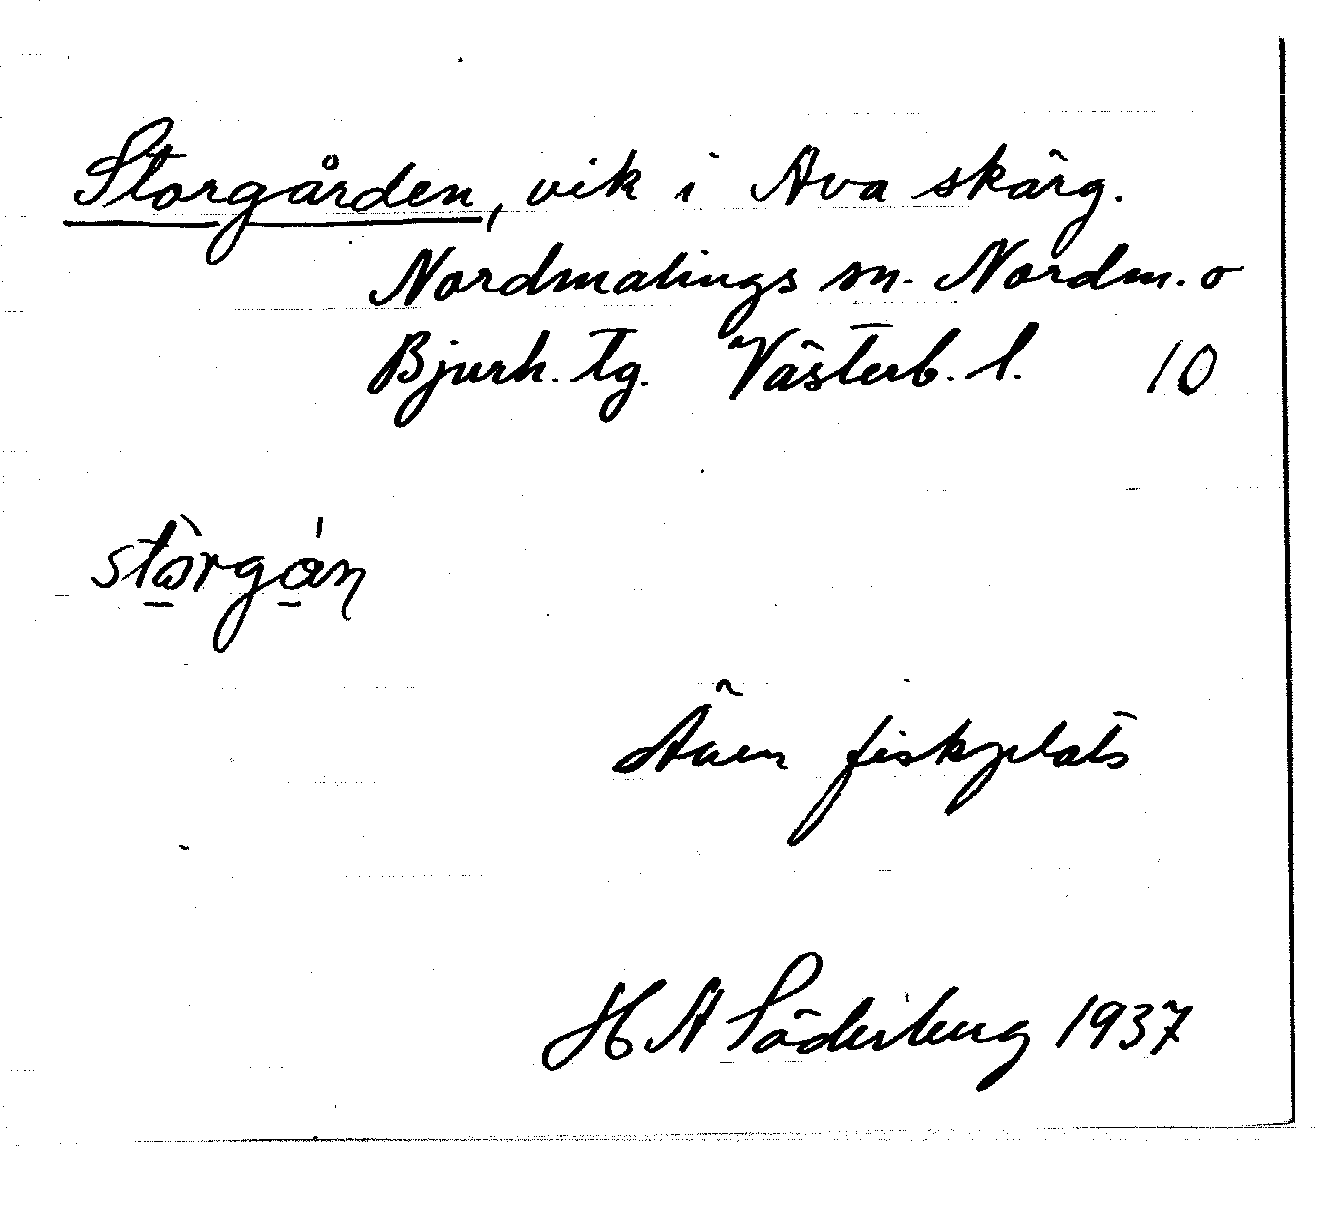 Storgården, vik i Ava skärg.
Nordmalings sn. Nordm. o
Bjurh. tg. Västerb. l. 10
stòrgán
Även fiskplats
H A Söderberg 1937